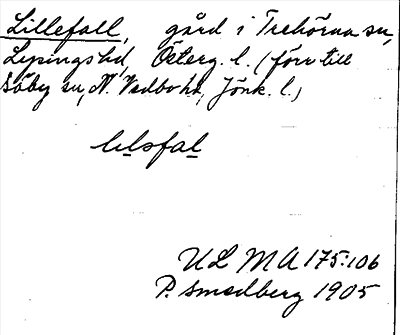 Lillefall, gård i Trehörna sn,
Lysingshd, Österg. l. (förr till
Säby sn, N. Vedbo hd, Jönk. l.)
lilsfal
ULMA 175:106
P. Smedberg 1905